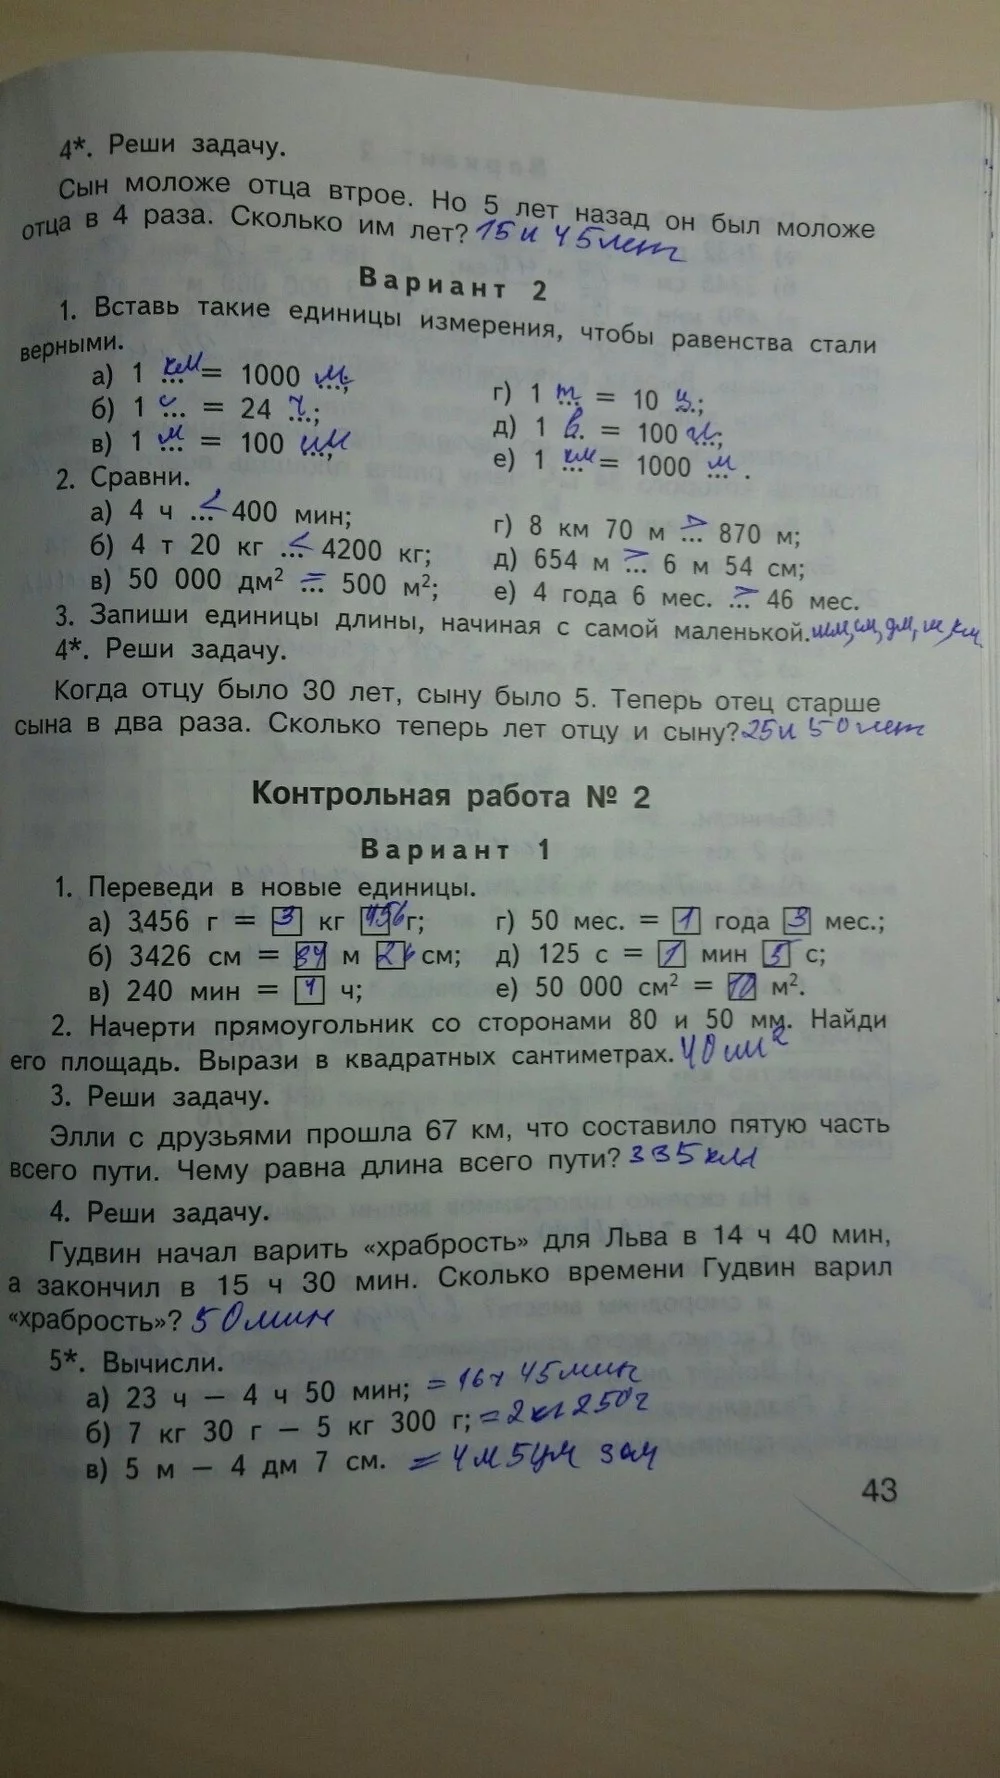 4*. Реши задачу.
Сын моложе отца втрое. Но 5 лет назад он был моложе
отца в 4 раза. Сколько им лет? 15 и 45 лет
Вариант 2
1. Вставь такие единицы измерения, чтобы равенства стали
верными.
а) 1 км = 1000 м;
г) 1 т = 10 ц;
б) 1 с = 24 ч;
д) 1 в. = 100
в) 1 м = 100 см
е) 1 км = 1000 м.
2. Сравни.
а) 4 ч ... < 400 мин;
г) 8 км 70 м > 870 м;
б) 4 т 20 кг ... < 4200 кг;
д) 654 м > 6 м 54 см;
в) 50 000 дм² = 500 м²;
е) 4 года 6 мес. > 46 мес.
3. Запиши единицы длины, начиная с самой маленькой. мм, см, дм, м, км
4*. Реши задачу.
Когда отцу было 30 лет, сыну было 5. Теперь отец старше
сына в два раза. Сколько теперь лет отцу и сыну? 25 и 50 лет
Контрольная работа № 2
Вариант 1
1. Переведи в новые единицы.
а) 3456 г = 3 кг 456 г;
г) 50 мес. = 1 года 3 мес.;
б) 3426 см = 34 м 26 см;
д) 125 с = 1 мин 5 с;
в) 240 мин = 4 ч;
е) 50 000 см² = 10 м².
2. Начерти прямоугольник со сторонами 80 и 50 мм. Найди
его площадь. Вырази в квадратных сантиметрах. 40 см²
3. Реши задачу.
Элли с друзьями прошла 67 км, что составило пятую часть
всего пути. Чему равна длина всего пути? 335 км
4. Реши задачу.
Гудвин начал варить «храбрость» для Льва в 14 ч 40 мин,
а закончил в 15 ч 30 мин. Сколько времени Гудвин варил
«храбрость»? 50 мин
5*. Вычисли.
а) 23 ч – 4 ч 50 мин; = 16ч 45 мин
б) 7 кг 30 г – 5 кг 300 г; = 2 кг 250 г
в) 5 м – 4 дм 7 см. = 4 м 5 дм 3 см
43